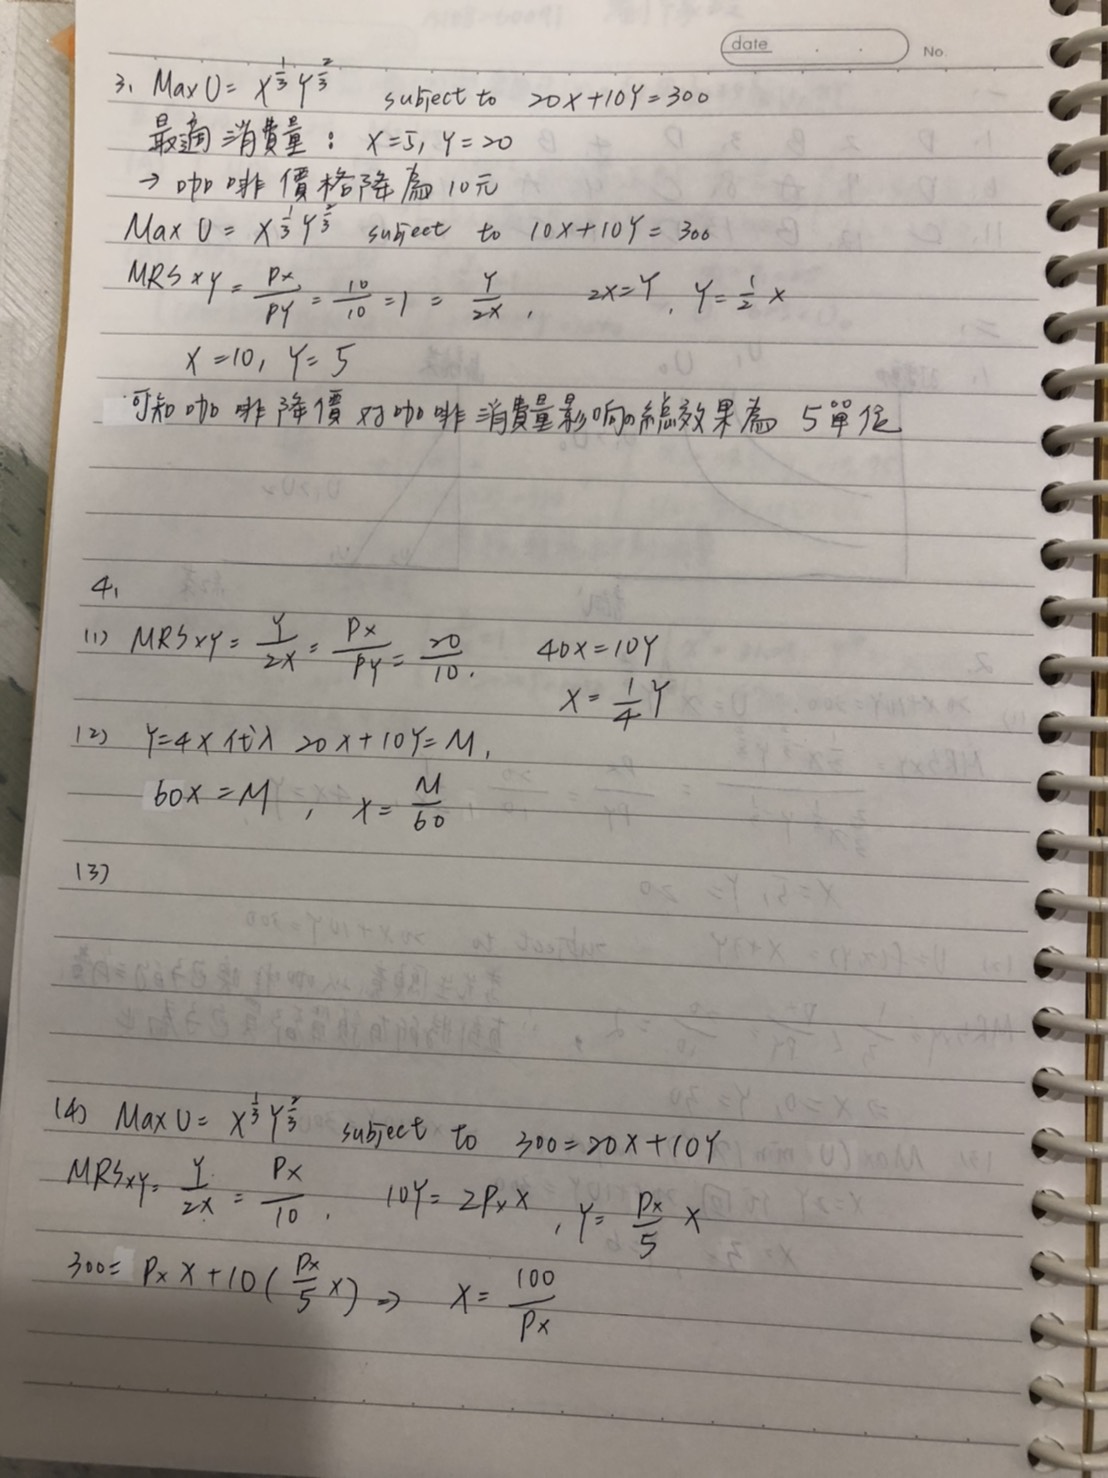 date . . No.
3. Max U = X^{1/3} Y^{2/3} subject to 20X+10Y=300
最適消費量 : X=5, Y=20
→ 咖啡價格降為10元
Max U = X^{1/3} Y^{2/3} subject to 10X+10Y=300
MRSxy = Px/Py = 10/10 = 1 = Y/2X , 2X=Y , Y=1/2 X
X=10, Y=5
可知咖啡降價對咖啡消費量影响的總效果為 5單位
4.
(1) MRSxy = Y/2X = Px/Py = 20/10 . 40X=10Y
X = 1/4 Y
(2) Y=4X代入 20X+10Y=M,
60X=M , X = M/60
(3)
(4) Max U = X^{1/3} Y^{2/3} subject to 300=20X+10Y
MRSxy = Y/2X = Px/10 . 10Y=2PxX , Y = Px/5 X
300 = PxX+10(Px/5 X) => X = 100/Px